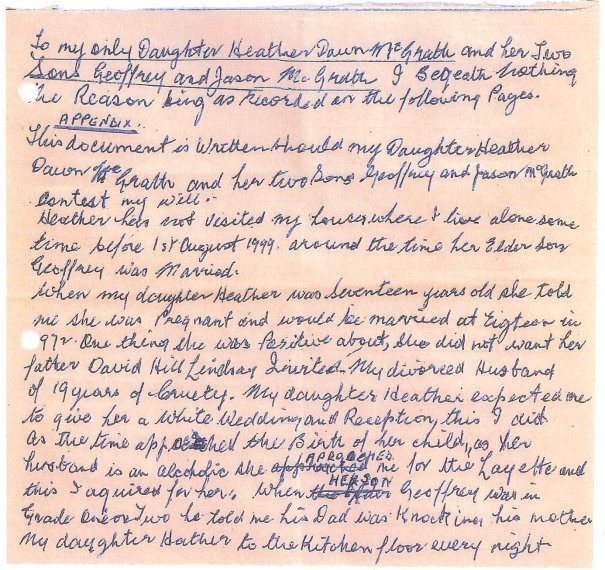 To my only Daughter Heather Dawn McGrath and her Two
Sons Geoffrey and Jason McGrath I Beqeath Nothing
The Reason being as recorded on the following Pages.
APPENDIX.
This document is Written should my Daughter Heather
Dawn McGrath and her two Sons Geoffrey and Jason McGrath
Contest my will.
Heather has not visited my house where I live alone some
time before 1st August 1999. around the time her Elder Son
Geoffrey was Married.
When my daughter Heather was Seventeen years old she told
me she was Pregnant and would be married at Eigteen in
972. One thing she was Positive about, she did not want her
father David Hill Lindsay Invited. My divorced Husband
of 19 years of Cruety. My daughter Heather expected me
to give her a White Wedding and Reception, this I did
As the time the Birth of her child, as her
APROACHED
husband is an alcoholic she approached me for the Layette and
HER SON
this I aquired for her. When Geoffrey was in
Grade One or Two he told me his Dad was Knocking his mother
My daughter Heather to the Kitchen floor every night